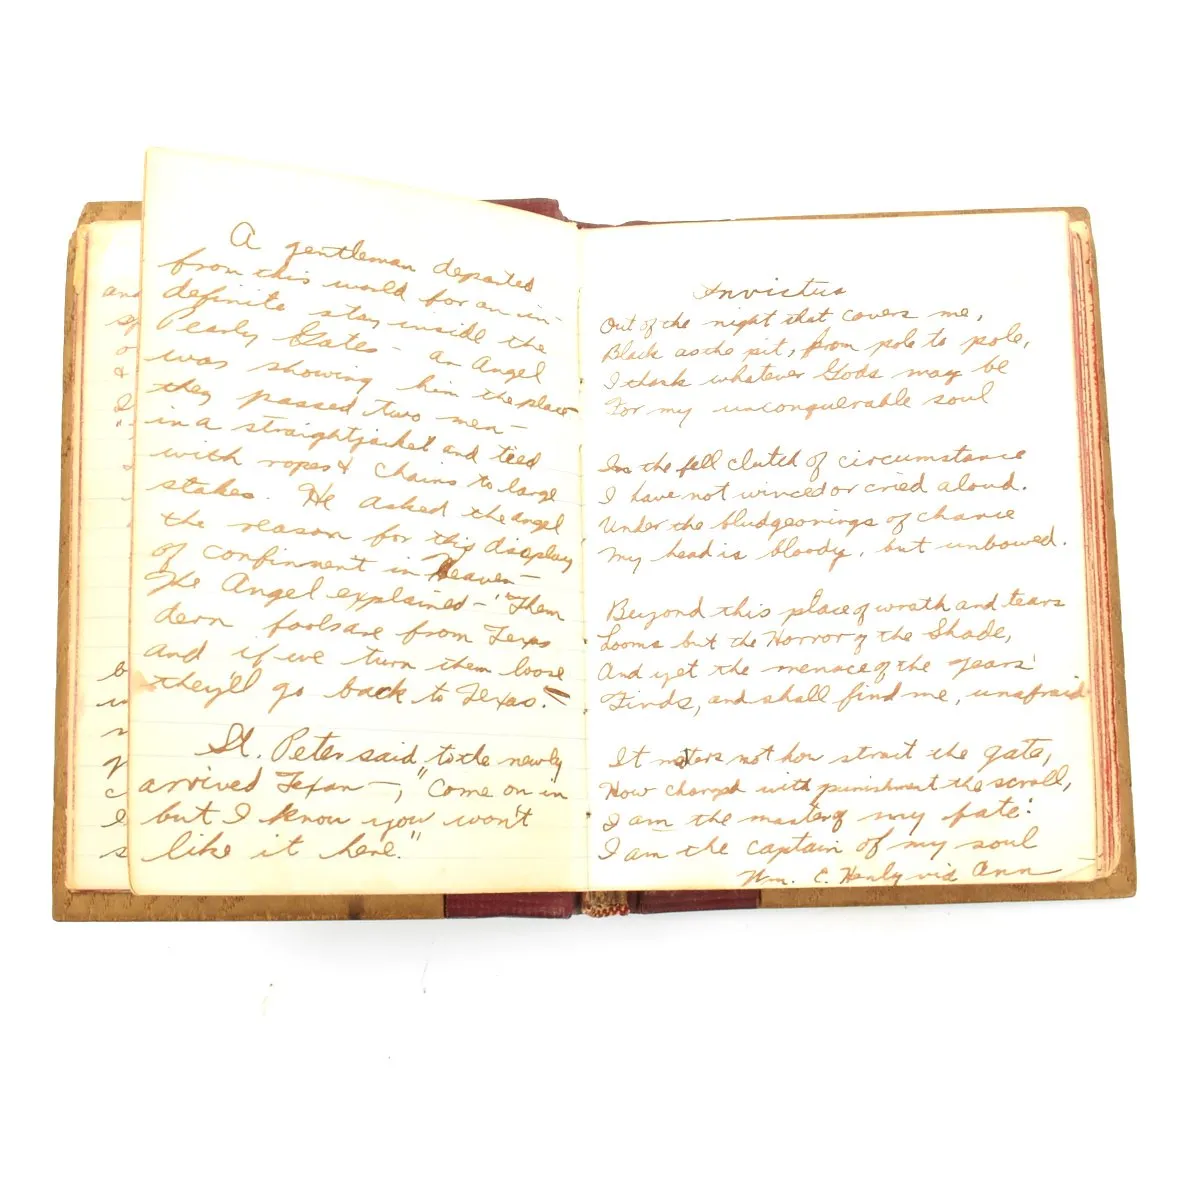 A gentleman departed
from this world for an in-
definite stay inside the
Pearly Gates - an Angel
was showing him the place
they passed two men -
in a straightjacket and tied
with ropes & chains to large
stakes. He asked the angel
the reason for this display
of confinment in Heaven -
The Angel explained - "Them
dern fools are from Texas
and if we turn them loose
they'll go back to Texas."
St. Peter said, to the newly
arrived Texan -, "Come on in
but I know you won't
like it here."
Invictus
Out of the night that covers me,
Black as the pit, from pole to pole,
I thank whatever Gods may be
For my unconquerable soul
In the fell clutch of circumstance
I have not winced or cried aloud.
Under the bludgeonings of chance
My head is bloody, but unbowed.
Beyond this place of wrath and tears
Looms but the Horror of the Shade,
And yet the menace of the years
Finds, and shall find me, unafraid
It maters not how strait the gate,
How charged with punishment the scroll,
I am the master of my fate:
I am the captain of my soul
Wm. E. Henly via Ann